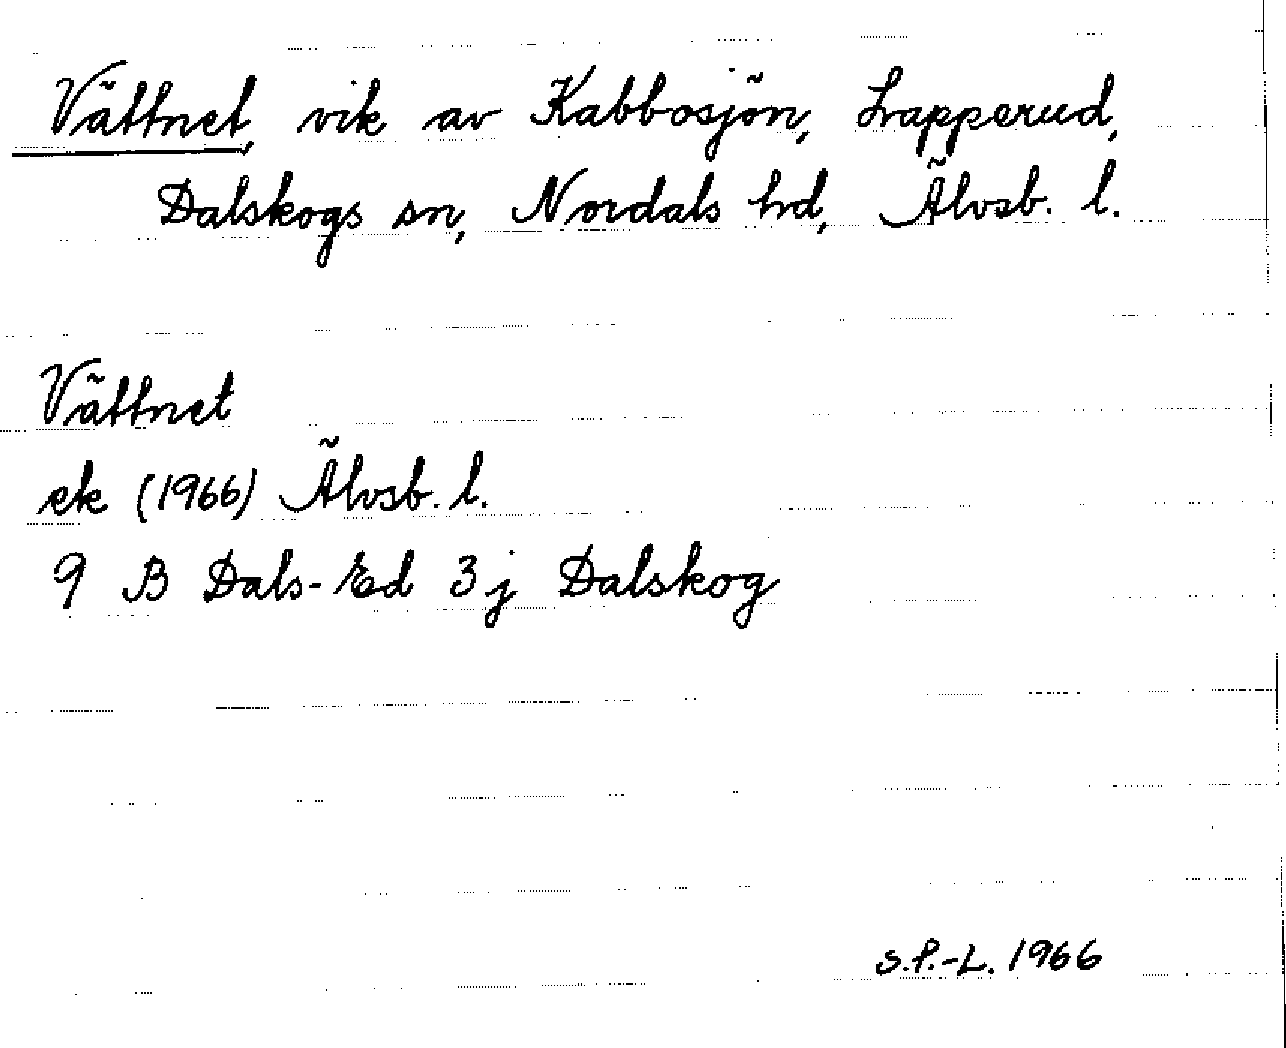 Vättnet, vik av Kabbosjön, Lrapperud,
Dalskogs sn, Nordals hd, Älvsb. l.
Vättnet
ek (1966) Älvsb. l.
9 B Dals-Ed 3j Dalskog
S.P.-L. 1966